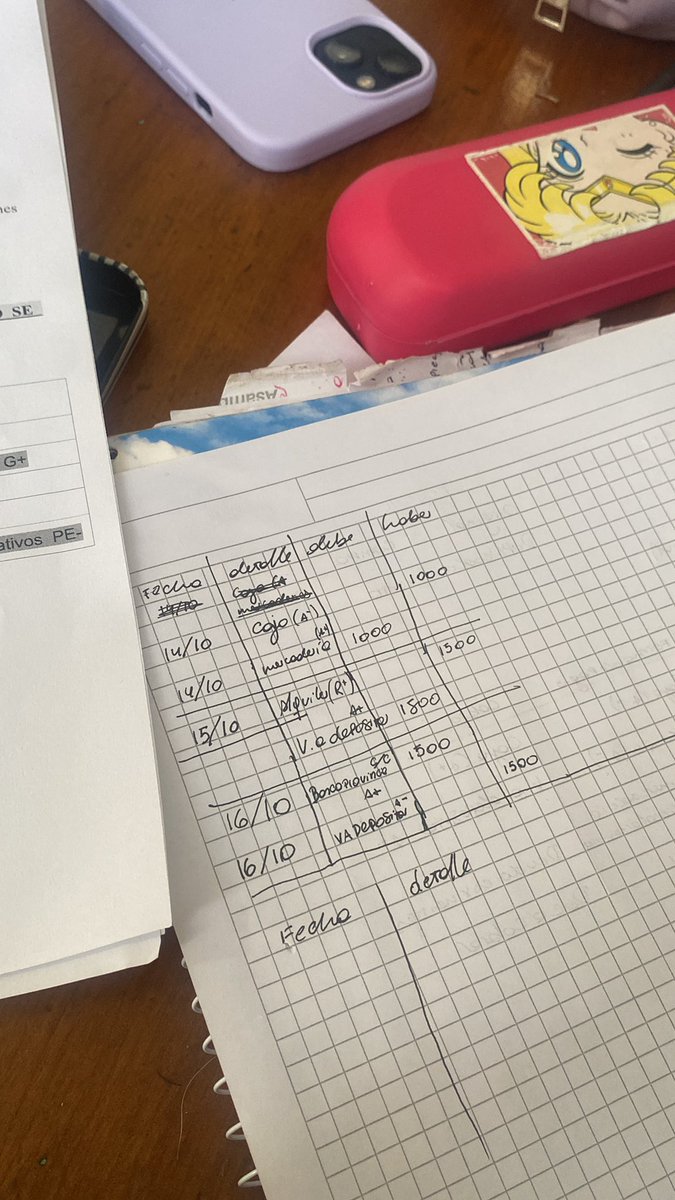 nes
O SE
G+
ativos PE-
Asamb
Fecha detalle debe haber
14/10 Caja C+
mercaderias
14/10 caja (A-) 1000
14/10 mercaderia (A+) 1000
15/10 Alquiler (R+) 1500
V. a depositar A+ 1800
16/10 Banco provincia c/c A+ 1500
16/10 VA Depositar A- 1500
Fecha detalle